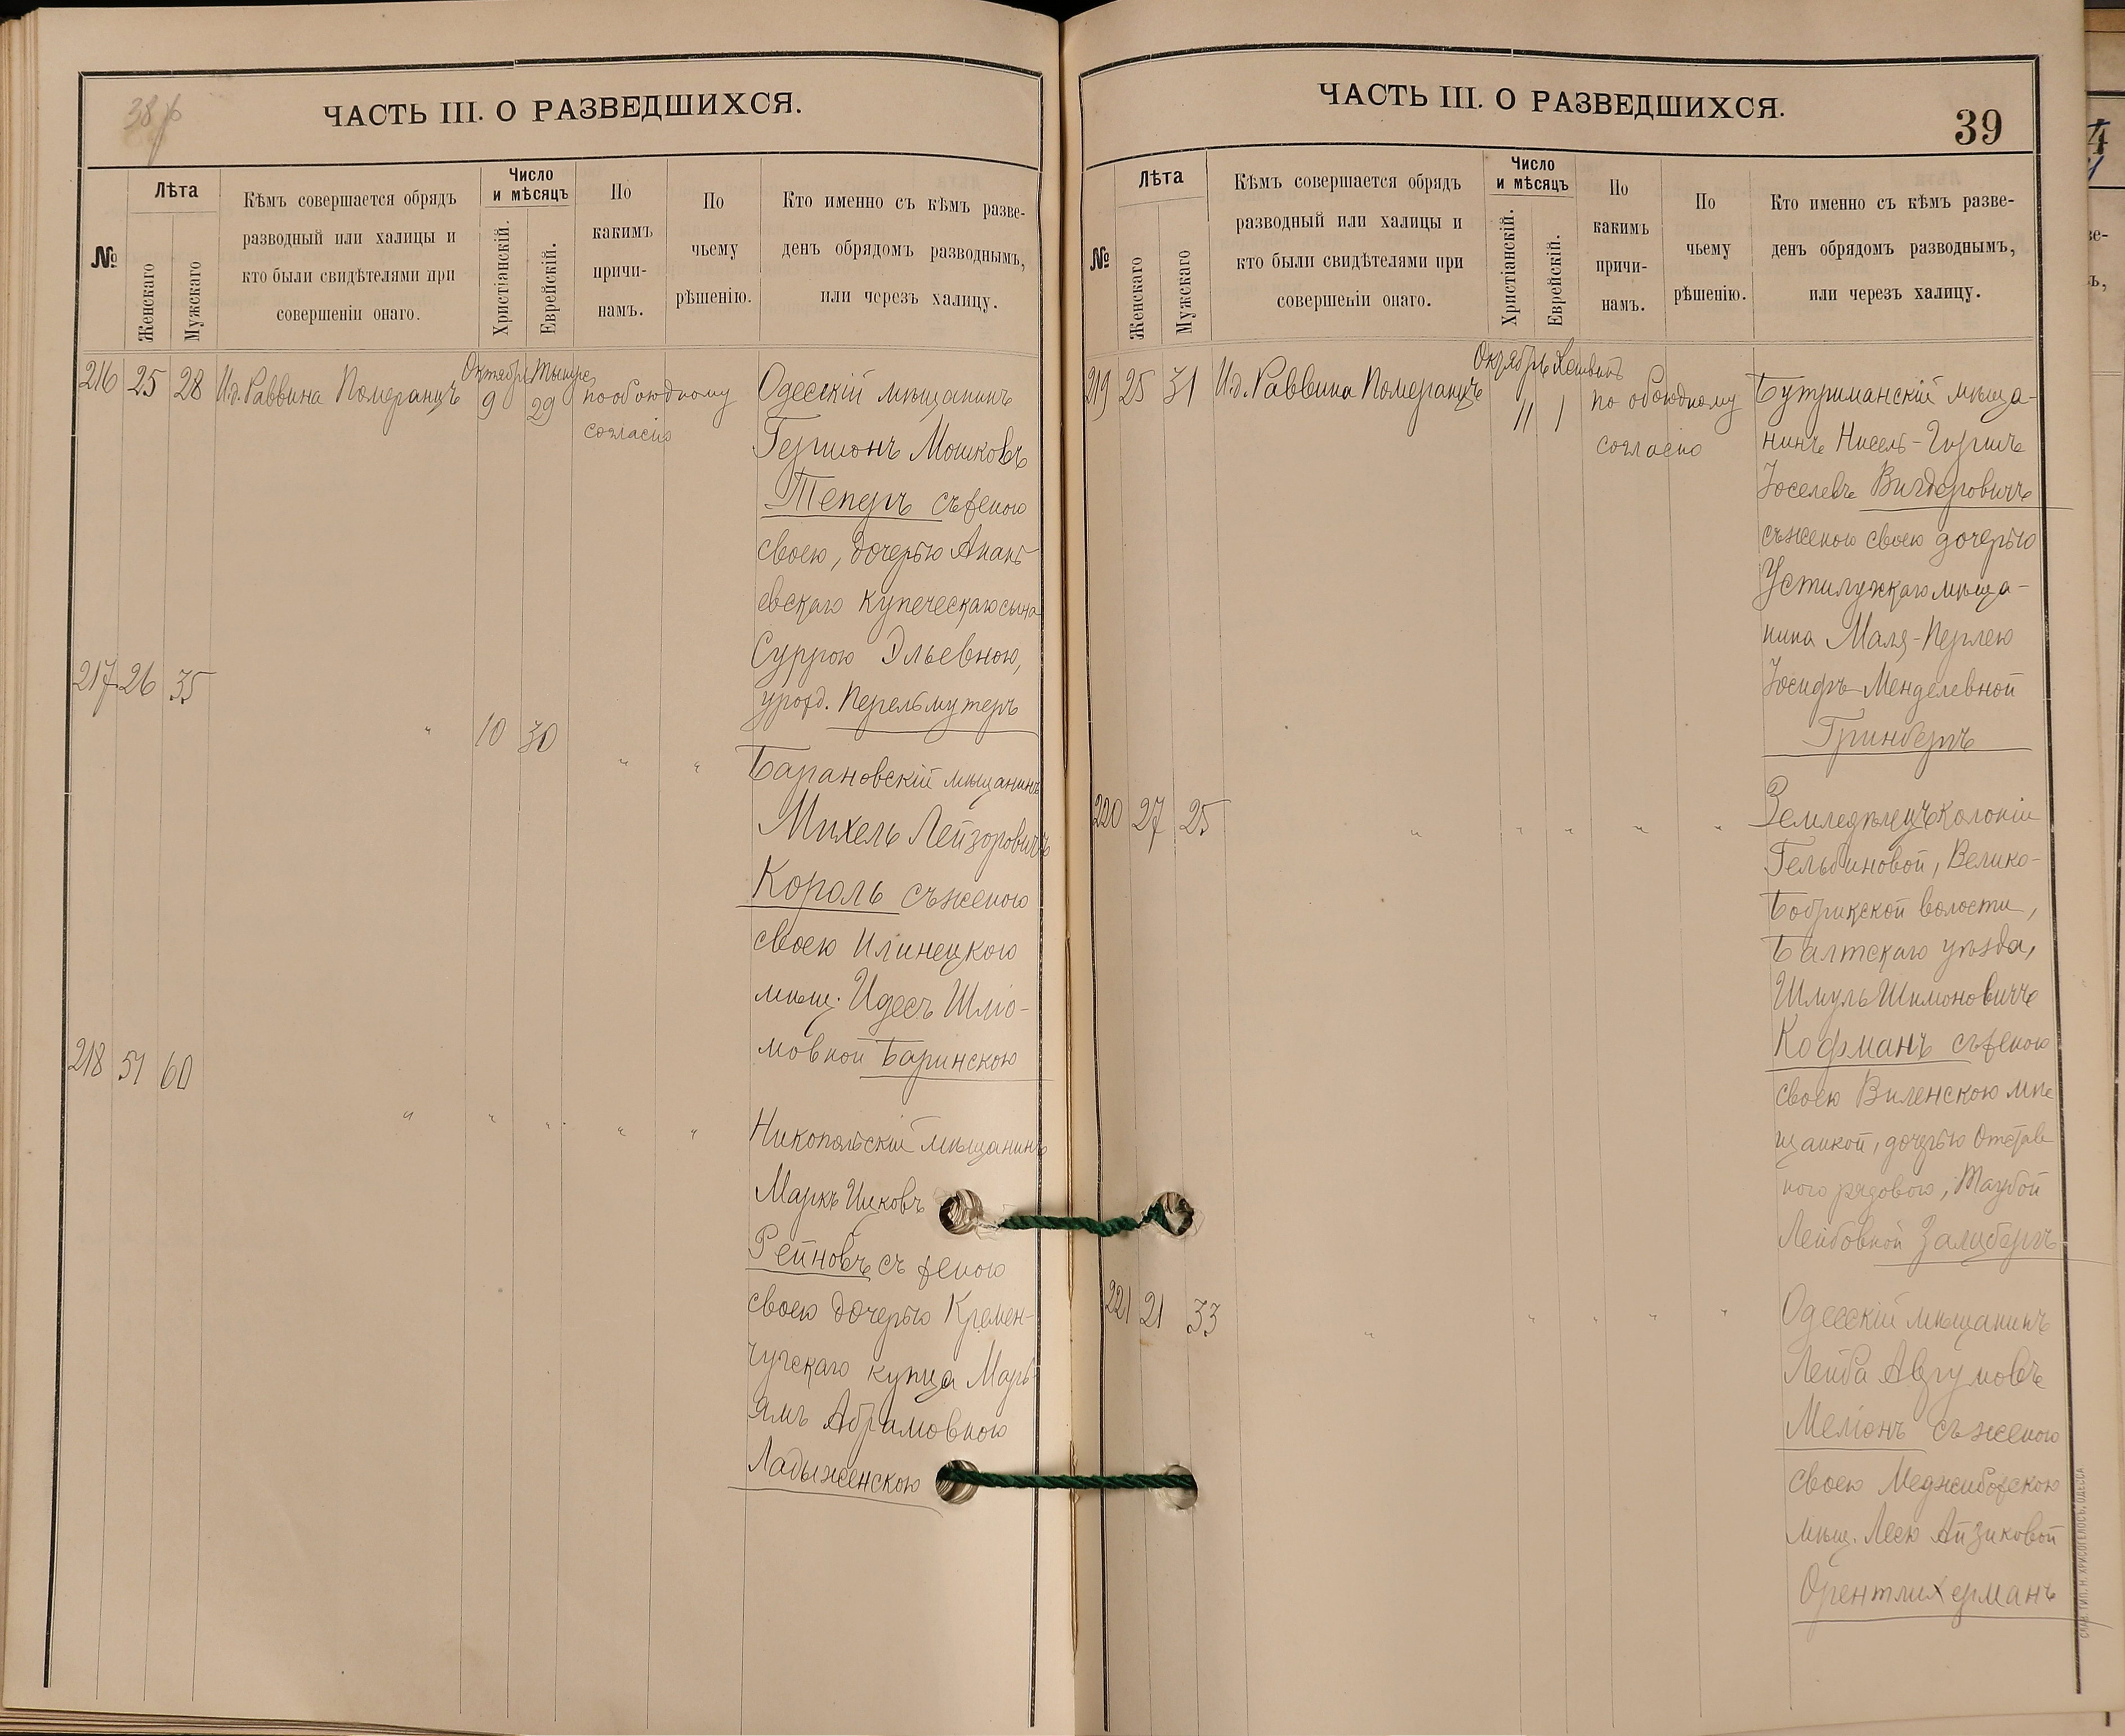 38 об
ЧАСТЬ III. О РАЗВЕДШИХСЯ.
№
Лѣта
Женскаго
Мужскаго
Кѣмъ совершается обрядъ
разводный или халицы и
кто были свидѣтелями при
совершеніи онаго.
Число
и мѣсяцъ
Христіанскій.
Еврейскій.
По
какимъ
причи-
намъ.
По
чьему
рѣшенію.
Кто именно съ кѣмъ разве-
денъ обрядомъ разводнымъ,
или черезъ халицу.
216 25 28 И.д. Раввина Померанцъ Октябрь 9 Тишре 29 по обоюдному
согласію
Одесскій мѣщанинъ
Гершонъ Мошковъ
Теперъ съ женою
своею, дочерью Анань-
евскаго купеческаго сына
Суррою Эльевною,
урожд. Перельмутеръ
217 26 35 " 10 30 " "
Барановскій мѣщанинъ
Михель Лейзоровичъ
Король съ женою
своею Илинецкою
мѣщ. Идесъ Шліо-
мовной Баринскою
218 51 60 " " " " "
Никопольскій мѣщанинъ
Маркъ Ицковъ
Рейновъ съ женою
своею дочерью Кремен-
чугскаго купца Марь-
ямъ Абрамовною
Ладыженскою
ЧАСТЬ III. О РАЗВЕДШИХСЯ.
39
№
Лѣта
Женскаго
Мужскаго
Кѣмъ совершается обрядъ
разводный или халицы и
кто были свидѣтелями при
совершеніи онаго.
Число
и мѣсяцъ
Христіанскій.
Еврейскій.
По
какимъ
причи-
намъ.
По
чьему
рѣшенію.
Кто именно съ кѣмъ разве-
денъ обрядомъ разводнымъ,
или черезъ халицу.
219 25 31 И.д. Раввина Померанцъ Октябрь 11 Хешвинъ 1 по обоюдному
согласію
Бутриманскій мѣща-
нинъ Нисель-Гиршъ
Іоселевъ Вигдоровичъ
съ женою своею дочерью
Устилужскаго мѣща-
нина Маля-Перлею
Іосифъ-Менделевной
Гринбергъ
220 27 25 " " " " "
Земледѣлецъ колоніи
Гельбиновой, Велико-
Бобрикской волости,
Балтскаго уѣзда,
Шмуль Шимоновичъ
Кофманъ съ женою
своею Виленскою мѣ-
щанкой, дочерью Отстав-
ного рядового, Таубой
Лейбовной Залцбергъ
221 21 33 " " " " "
Одесскій мѣщанинъ
Лейба Аврумовъ
Меліонъ съ женою
своею Меджибожскою
мѣщ. Леею Айзиковой
Орентлихерманъ
СКЛ. В. ТИП. Н. ХРИСОГЕЛОСЪ, ОДЕССА